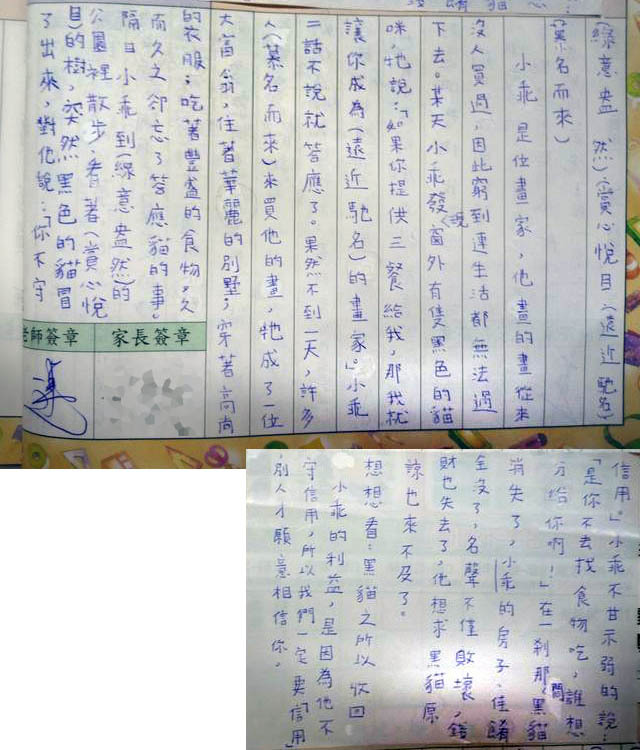 (綠意盎然)(賞心悅目)(遠近馳名)
(慕名而來)
小乖是位畫家,他畫的畫從來
沒人買過,因此窮到連生活都無法過
下去。某天小乖發現窗外有隻黑色的貓
咪,牠說:「如果你提供三餐給我,那我就
讓你成為(遠近馳名)的畫家。」小乖
二話不說就答應了。果然不到一天,許多
人(慕名而來)來買他的畫,牠成了一位
大富翁,住著華麗的別墅;穿著高尚
的衣服;吃著豐盛的食物。久
而久之卻忘了答應貓的事。
隔日小乖到(綠意盎然)的
公園裡散步,看著(賞心悅
目)的樹,突然黑色的貓冒
了出來,對他說:「你不守
老師簽章
家長簽章
信用。」小乖不甘示弱的說:
「是你不去找食物吃,誰想
分給你啊!」在一剎那間,黑貓
消失了,小乖的房子、佳餚
全沒了,名聲不僅敗壞,錢
財也失去了,他想求黑貓原
諒也來不及了。
想想看:黑貓之所以收回
小乖的利益,是因為他不
守信用,所以我們一定要「信用」
別人才願意相信你。